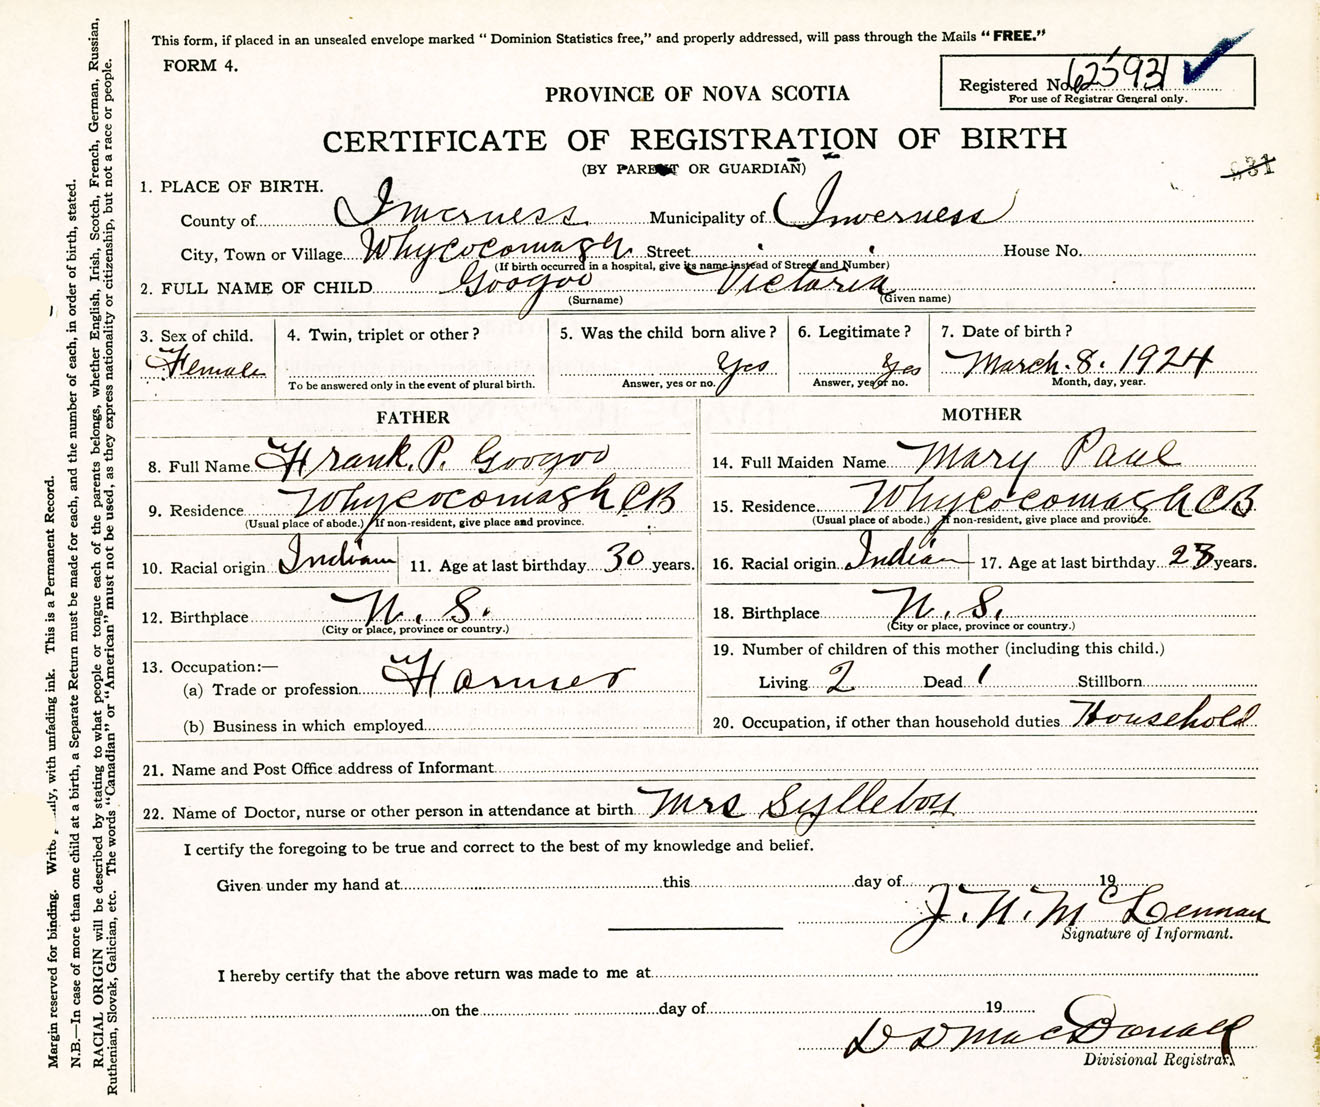 This form, if placed in an unsealed envelope marked " Dominion Statistics free," and properly addressed, will pass through the Mails " FREE."
FORM 4.
Registered No. 625931
For use of Registrar General only.
PROVINCE OF NOVA SCOTIA
CERTIFICATE OF REGISTRATION OF BIRTH
(BY PARENT OR GUARDIAN)
1. PLACE OF BIRTH.
County of Inverness Municipality of Inverness
City, Town or Village Whycocomagh Street House No.
(If birth occurred in a hospital, give its name instead of Street and Number)
2. FULL NAME OF CHILD Googoo Victoria
(Surname) (Given name)
3. Sex of child. 4. Twin, triplet or other ? 5. Was the child born alive ? 6. Legitimate ? 7. Date of birth ?
Female Yes Yes March. 8. 1924
To be answered only in the event of plural birth. Answer, yes or no. Answer, yes or no. Month, day, year.
FATHER MOTHER
8. Full Name Frank. P. Googoo 14. Full Maiden Name Mary Paul
9. Residence Whycocomagh CB 15. Residence Whycocomagh CB
(Usual place of abode.) If non-resident, give place and province. (Usual place of abode.) If non-resident, give place and province.
10. Racial origin Indian 11. Age at last birthday 30 years. 16. Racial origin Indian 17. Age at last birthday years.
12. Birthplace N. S. 18. Birthplace N. S.
(City or place, province or country.) (City or place, province or country.)
13. Occupation:— 19. Number of children of this mother (including this child.)
(a) Trade or profession Farmer Living 2 Dead 1 Stillborn
(b) Business in which employed 20. Occupation, if other than household duties Household
21. Name and Post Office address of Informant
22. Name of Doctor, nurse or other person in attendance at birth Mrs Sylleboy
I certify the foregoing to be true and correct to the best of my knowledge and belief.
Given under my hand at this day of 19
J. N. McLennan
Signature of Informant.
I hereby certify that the above return was made to me at
on the day of 19
D D MacDonald
Divisional Registrar
Margin reserved for binding. with unfading ink. This is a Permanent Record.
N.B.—In case of more than one child at a birth, a Separate Return must be made for each, and the number of each, in order of birth, stated.
RACIAL ORIGIN will be described by stating to what people or tongue each of the parents belongs, whether English, Irish, Scotch, French, German, Russian,
Ruthenian, Slovak, Galician, etc. The words "Canadian" or "American" must not be used, as they express nationality or citizenship, but not a race or people.